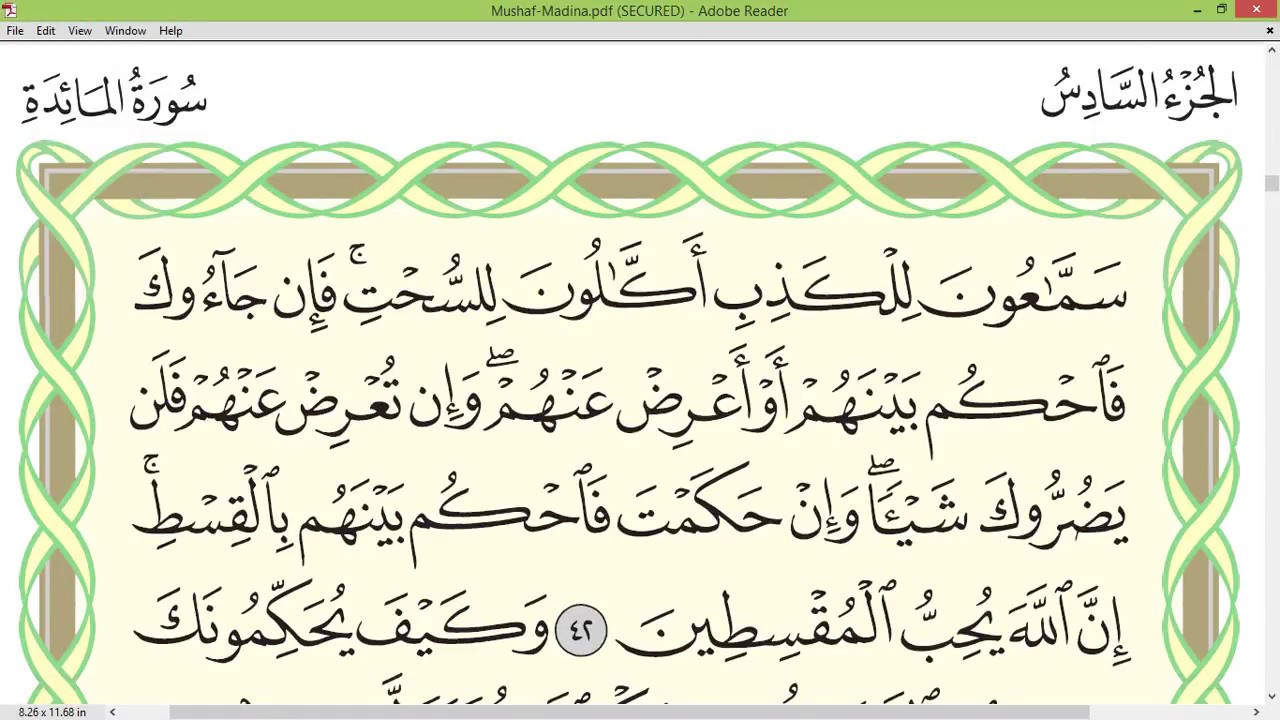 Mushaf-Madina.pdf (SECURED) - Adobe Reader
File Edit View Window Help
الجُزْءُ السَّادِسُ سُورَةُ المَائِدَةِ
سَمَّٰعُونَ لِلْكَذِبِ أَكَّٰلُونَ لِلسُّحْتِۚ فَإِن جَآءُوكَ
فَٱحْكُم بَيْنَهُمْ أَوْ أَعْرِضْ عَنْهُمْۖ وَإِن تُعْرِضْ عَنْهُمْ فَلَن
يَضُرُّوكَ شَيْـًٔاۖ وَإِنْ حَكَمْتَ فَٱحْكُم بَيْنَهُم بِٱلْقِسْطِۚ
إِنَّ ٱللَّهَ يُحِبُّ ٱلْمُقْسِطِينَ ٤٢ وَكَيْفَ يُحَكِّمُونَكَ
8.26 x 11.68 in